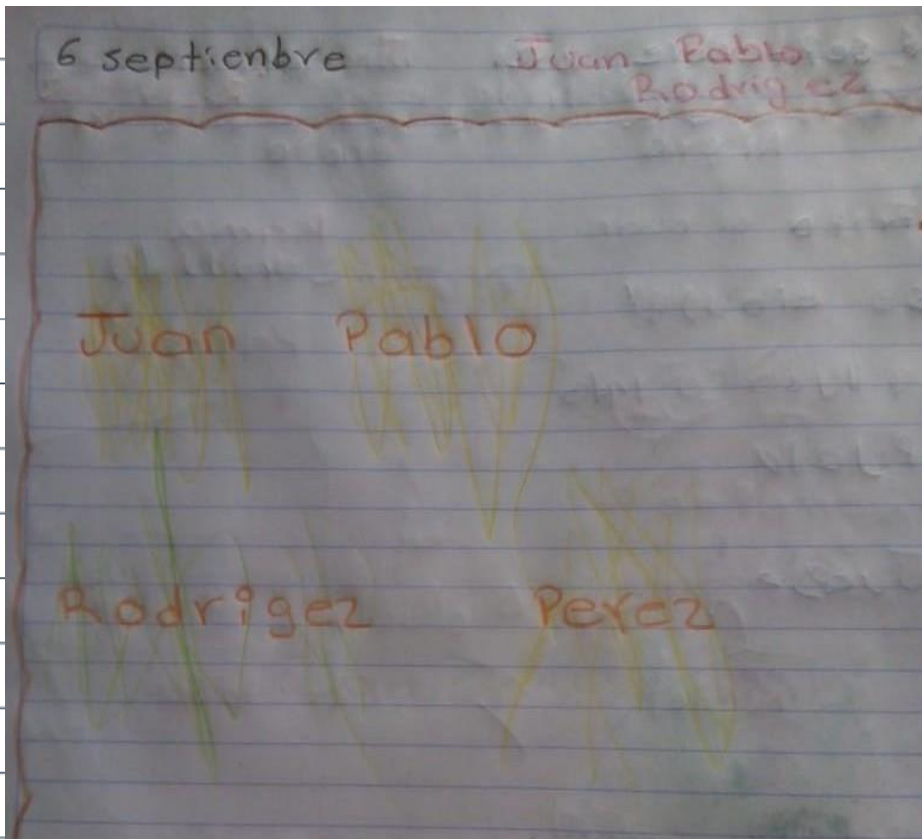 6 septienbre Juan Pablo
Rodrigez
Juan Pablo
Rodrigez Perez